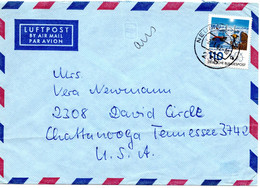 LUFTPOST
BY AIR MAIL
PAR AVION
Mrs
Vera Newmann
2308 David Circle
Chattanooga Tennessee 3742
U.S.A.
110
DEUTSCHE BUNDESPOST